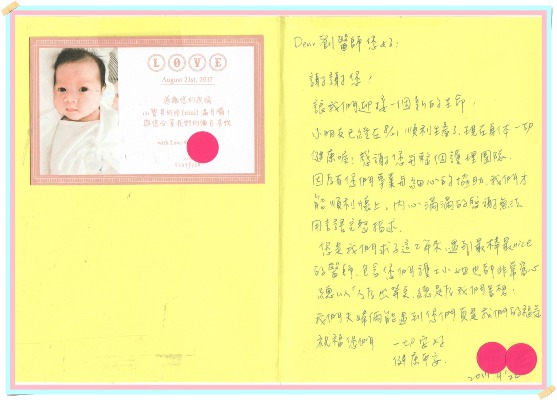 LOVE
August 21st, 2017
感謝您的祝福
with Love
Dear 劉醫師您好:
謝謝您!
讓我們迎接一個新的生命.
小朋友已經在8/21順利生產了,現在身體一切
健康唷!感謝您與整個護理團隊.
因為有你們專業與細心的協助,我們才
能順利懷上,內心滿滿的感謝無法
用言語完整描述.
您是我們求子這幾年來,遇到最棒最nice
的醫師,包含您們護士小姐也都非常窩心
總以
我們夫婦倆能遇到你們真是我們的福氣
祝福你們 一切安好
健康平安.